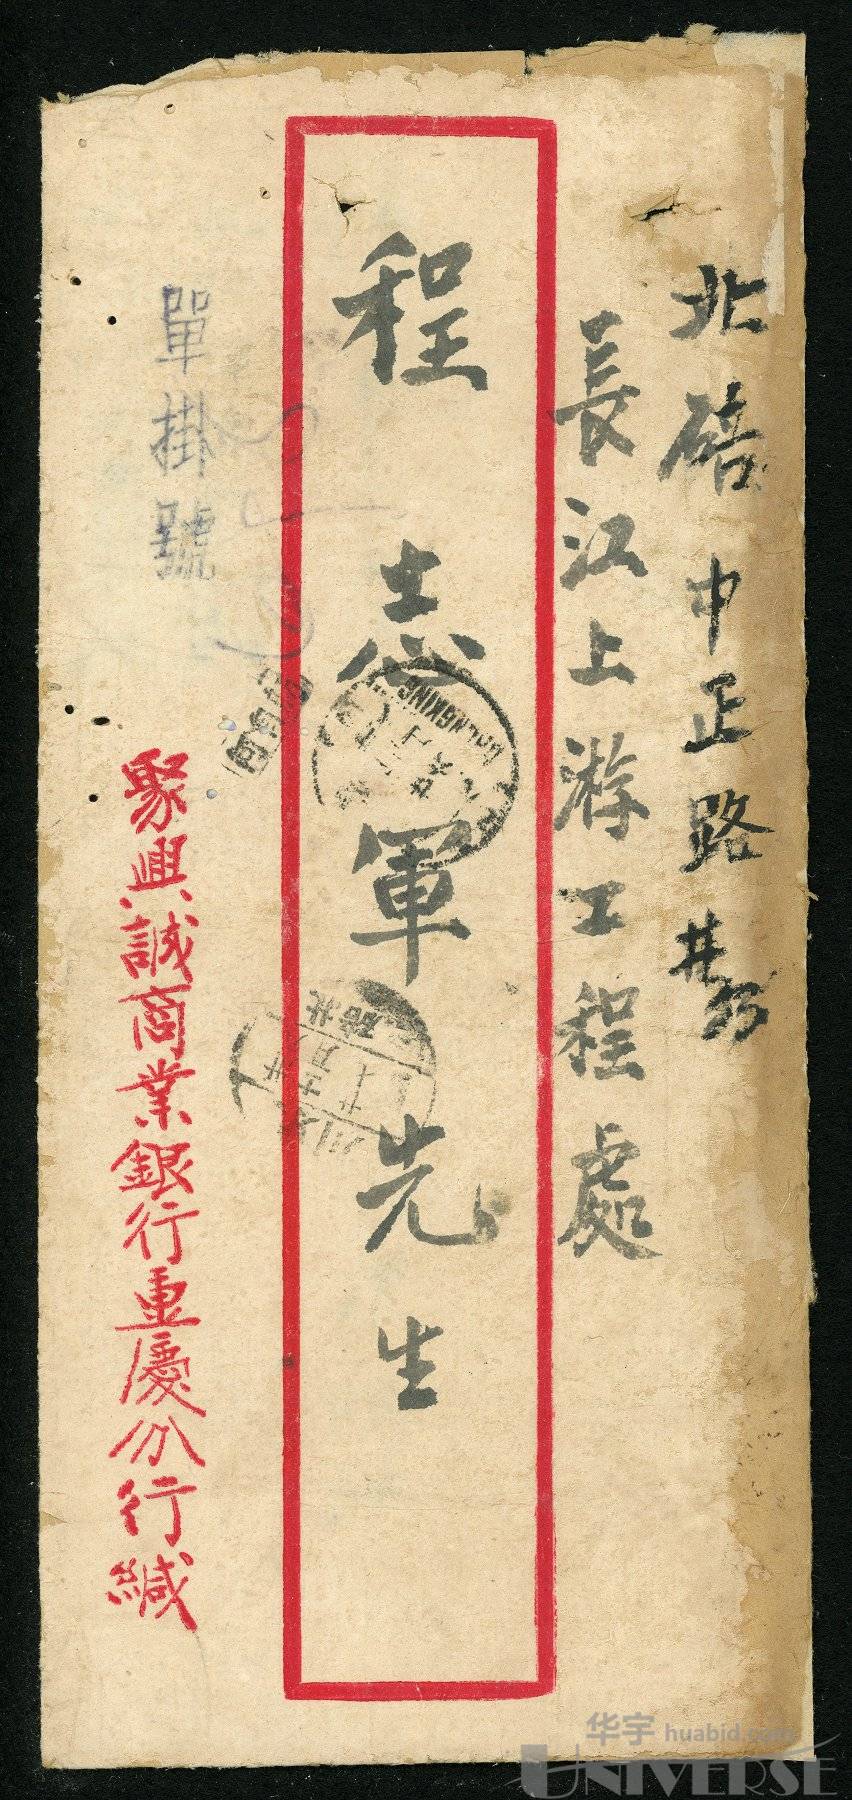 北碚中正路
長江上游工程處
程志軍先生
單掛號
聚興誠商業銀行重慶分行緘
CHUNGKING
华宇 huabid.com
UNIVERSE